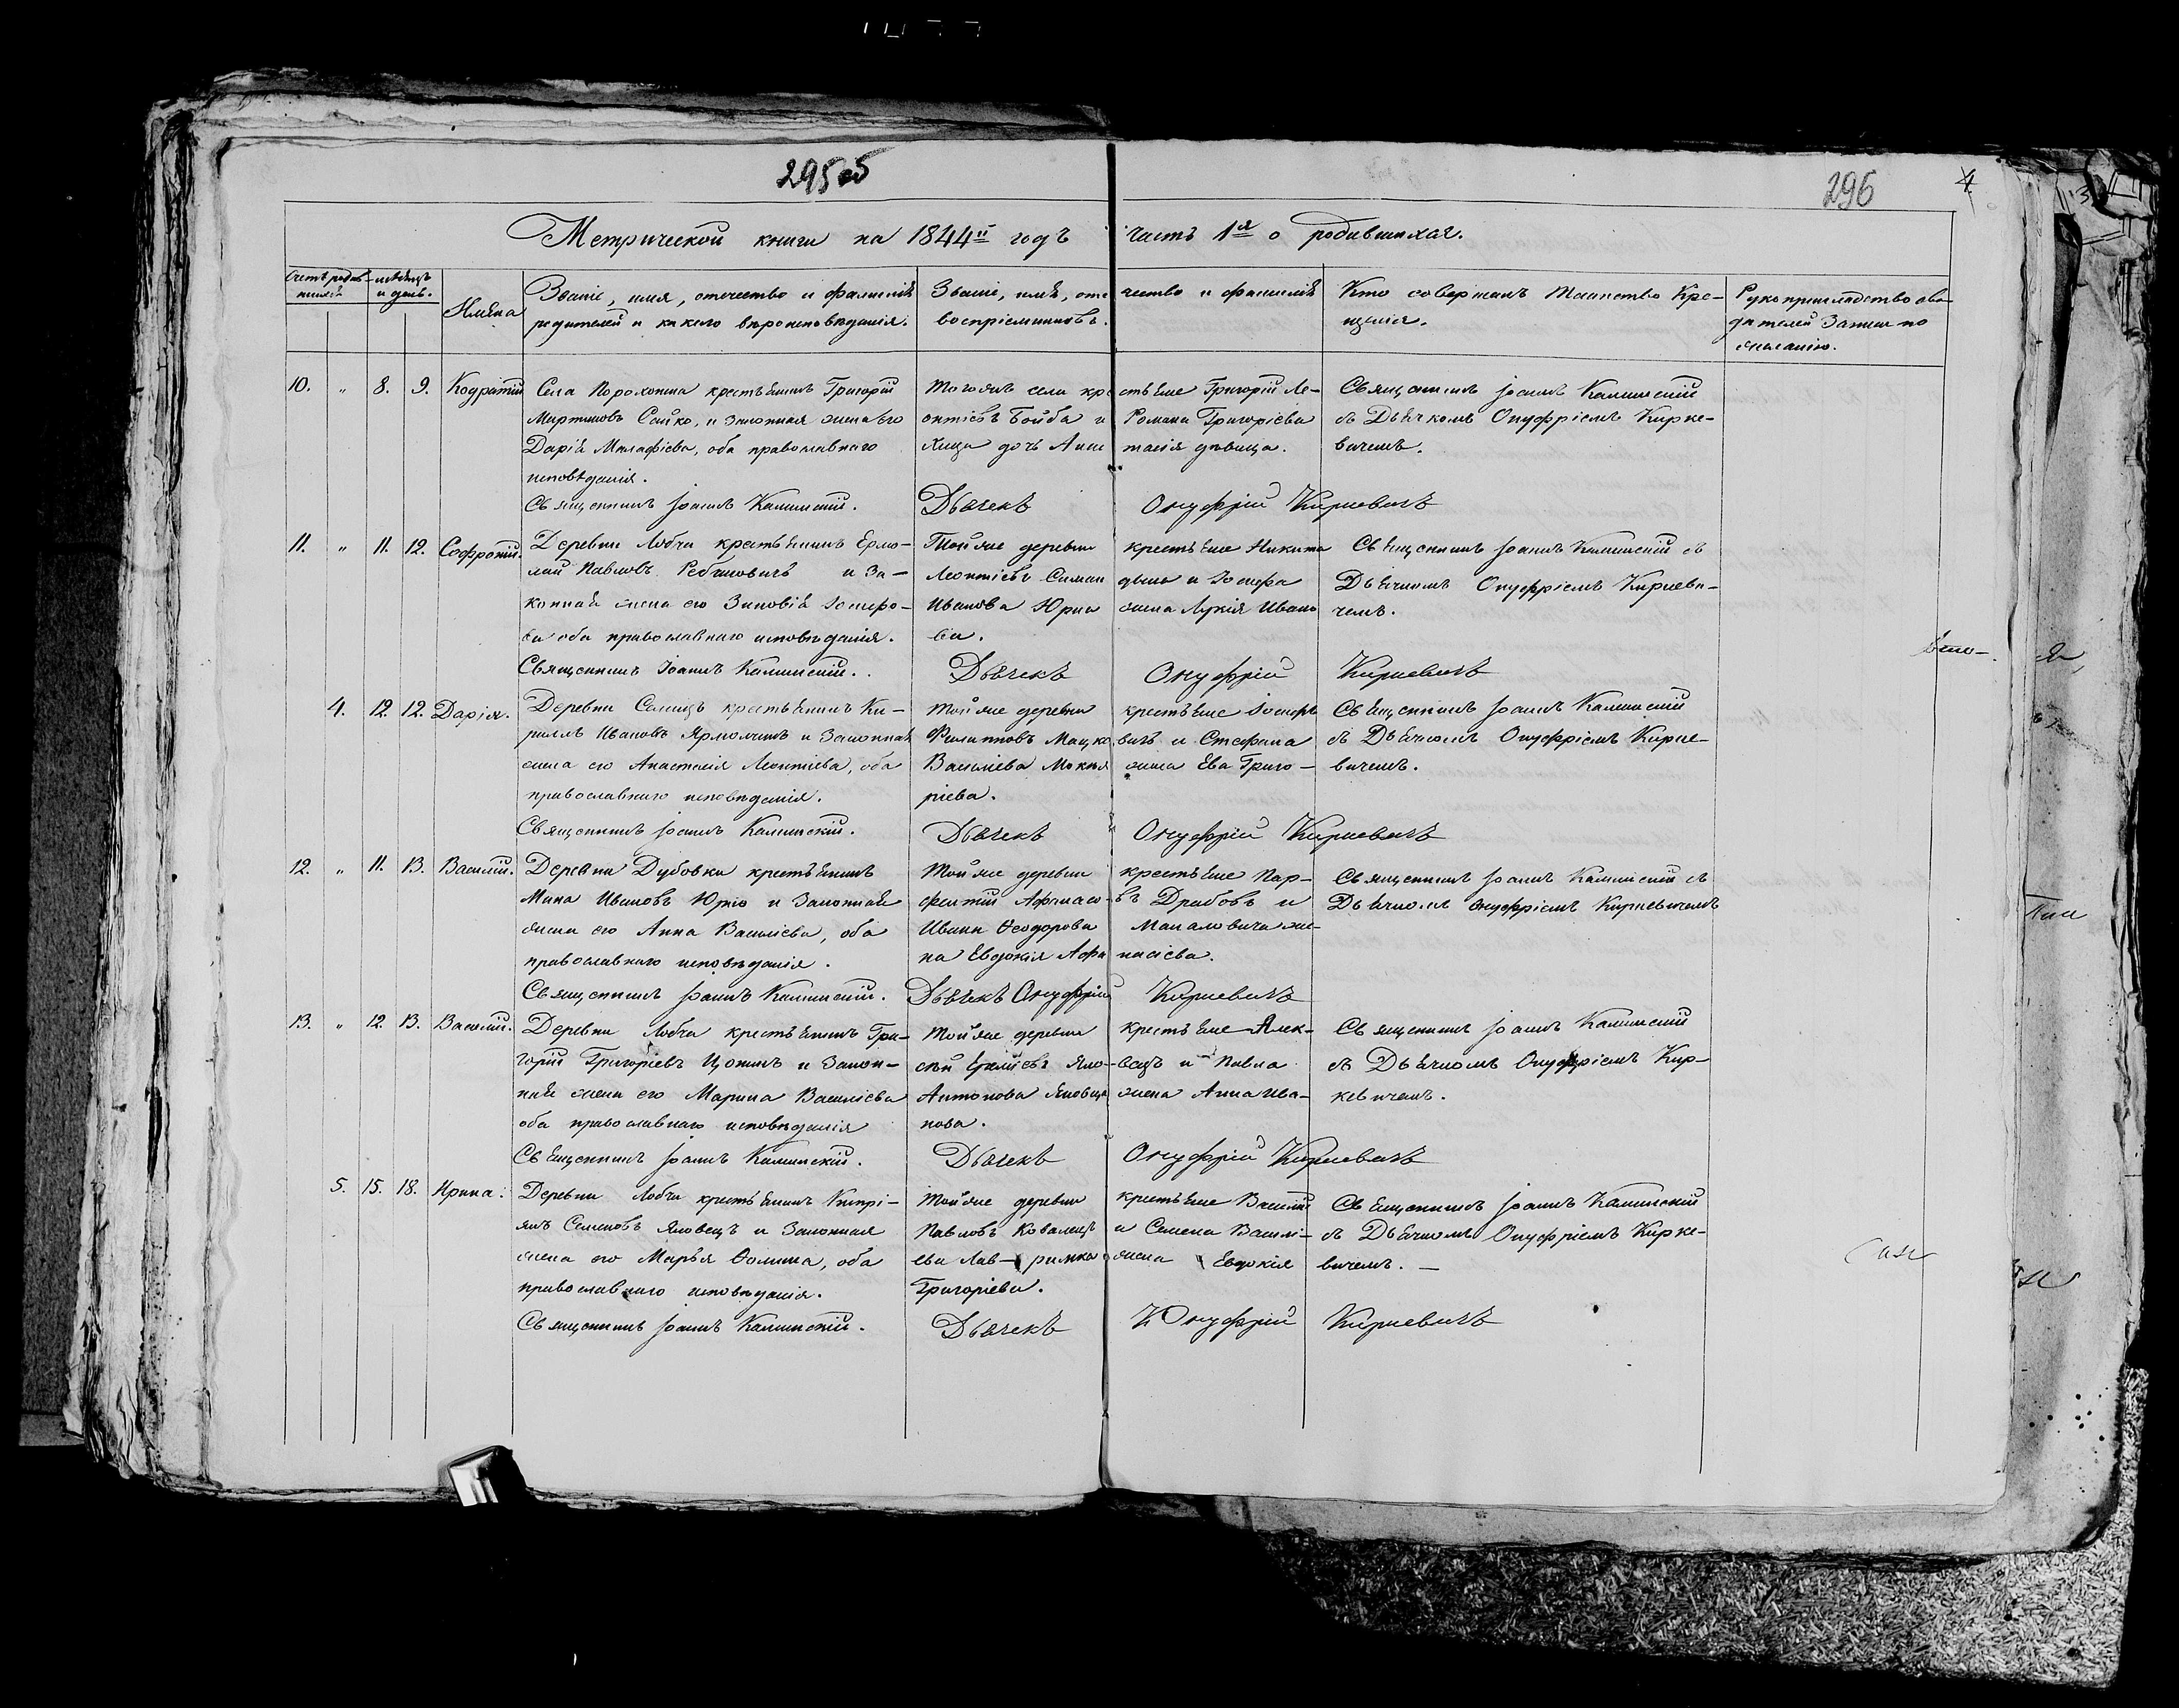 295об
296
4
Метрической книги на 1844й годъ часть 1я о родившихся.
Счетъ родившихся
мѣсяцъ и день.
Имена
Званіе, имя, отечество и фамилія
родителей и какого вѣроисповѣданія.
Званіе, имя, отечество и фамилія
воспріемниковъ.
Кто совершалъ Таинство Кре-
щенія.
Рукоприкладство сви-
дѣтелей записи по
желанію.
10. " 8. 9. Кодратій
Села Порохонска крестьянинъ Григорій
Мартиновъ Сайко, и законная жена его
Дарія Малафіева, оба православнаго
исповѣданія.
Священникъ Іоаннъ Калинскій.
Тогожъ села крестьяне Григорій Ле-
онтіевъ Бойба и Романа Григоріева
дочь Анастасія дѣвица.
Дьячекъ Онуфрій Киркевичъ
Священникъ Іоаннъ Калинскій
съ Дьячкомъ Онуфріемъ Кирке-
вичемъ.
11. " 11. 12. Софроній.
Деревни Лобчи крестьянинъ Ермо-
лай Павловъ Ребковичъ и за-
конная жена его Зиновія Іосифо-
ва оба православнаго исповѣданія.
Священникъ Іоаннъ Калинскій.
Той же деревни крестьяне Никита
Леонтіевъ и Іосифа
Иванова жена Лукія Ивано
ва.
Дьячекъ Онуфрій Киркевичъ
Священникъ Іоаннъ Калинскій съ
Дьячкомъ Онуфріемъ Киркеви-
чемъ.
4. 12. 12. Дарія.
Деревни Селищъ крестьянинъ Ки-
риллъ Ивановъ Ярмолчикъ и законная
жена его Анастасія Леонтіева, оба
православнаго исповѣданія.
Священникъ Іоаннъ Калинскій.
Той же деревни крестьяне Іосифъ
Филипповъ Мацкевичъ и Стефана
Василіева жена Ева Григо-
ріева.
Дьячекъ Онуфрій Киркевичъ
Священникъ Іоаннъ Калинскій
съ Дьячкомъ Онуфріемъ Кирке-
вичемъ.
12. " 11. 13. Василій.
Деревни Дубовки крестьянинъ
Мина Ивановъ Юрко и законная
жена его Анна Василіева, оба
православнаго исповѣданія.
Священникъ Іоаннъ Калинскій.
Той же деревни крестьяне Пар-
фентій Афанасовъ Дробовъ и
Ивана Ѳеодорова же-
на Евдокія Афанасіева.
Дьячекъ Онуфрій Киркевичъ
Священникъ Іоаннъ Калинскій съ
Дьячкомъ Онуфріемъ Киркевичемъ
13. " 12. 13. Василій.
Деревни Лобча крестьянинъ Гри-
горій Григоріевъ Цопикъ и закон-
ная жена его Марина Василіева
оба православнаго исповѣданія
Священникъ Іоаннъ Калинскій.
Той же деревни крестьяне Алек-
сѣй Яловецъ и Павла
Антонова Яловца жена Анна Ива-
нова.
Дьячекъ Онуфрій Киркевичъ
Священникъ Іоаннъ Калинскій
съ Дьячкомъ Онуфріемъ Кир-
кевичемъ.
5. 15. 18. Ирина.
Деревни Лобча крестьянинъ Кипрі-
янъ Семеновъ Яловецъ и законная
жена его Марья Ѳомина, оба
православнаго исповѣданія.
Священникъ Іоаннъ Калинскій.
Той же деревни крестьяне Василій
Павловъ Ковалецъ и Семена Василі-
ева жена Евдокія
Григоріева.
Дьячекъ Онуфрій Киркевичъ
Священникъ Іоаннъ Калинскій
съ Дьячкомъ Онуфріемъ Кирке-
вичемъ.